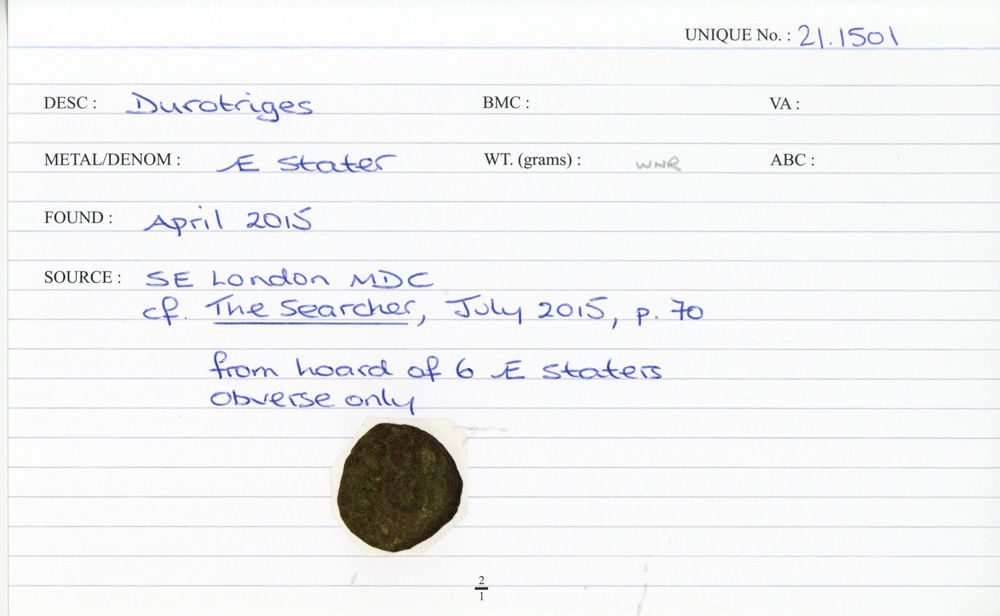 UNIQUE No. : 21.1501
DESC : Durotriges BMC : VA :
METAL/DENOM : Æ Stater WT. (grams) : WNR ABC :
FOUND : April 2015
SOURCE : SE London MDC
cf. The Searcher, July 2015, p. 70
from hoard of 6 Æ staters
obverse only
2
1